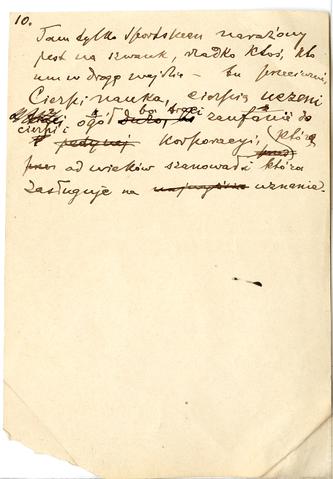 10.
Tam tylko sportskeen narażony
jest na szwank, rzadko ktoś, kto
mu w drogę wejdzie – tu przeciwnie,
Cierpi nauka, cierpią uczeni
cierpi i ogół bo traci zaufanie do
jedynej korporacyi, którą
od wieków szanował i która
zasługuje na uznanie.